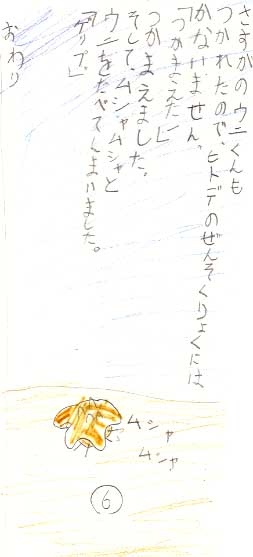 さすがのウニくんも
つかれたので、ヒトデのぜんそくりょくには
かないません。
「つかまえた!」
つかまえました。
そして、ムシャムシャと
ウニをたべてしまいました。
「ゲップ」
おわり
ムシャ
ムシャ
6